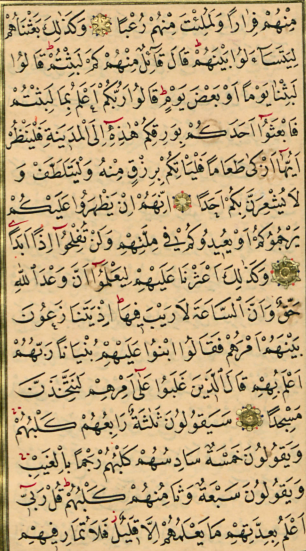 مِنْهُمْ فِرَارًا وَلَمُلِئْتَ مِنْهُمْ رُعْبًا وَكَذٰلِكَ بَعَثْنَاهُمْ
لِيَتَسَآءَلُوا بَيْنَهُمْ قَالَ قَآئِلٌ مِنْهُمْ كَمْ لَبِثْتُمْ قَالُوا
لَبِثْنَا يَوْمًا اَوْ بَعْضَ يَوْمٍ قَالُوا رَبُّكُمْ اَعْلَمُ بِمَا لَبِثْتُمْ
فَابْعَثُوٓا اَحَدَكُمْ بِوَرِقِكُمْ هٰذِهِٓ اِلَى الْمَدِينَةِ فَلْيَنْظُرْ
اَيُّهَٓا اَزْكٰى طَعَامًا فَلْيَاْتِكُمْ بِرِزْقٍ مِنْهُ وَلْيَتَلَطَّفْ وَ
لَا يُشْعِرَنَّ بِكُمْ اَحَدًا اِنَّهُمْ اِنْ يَظْهَرُوا عَلَيْكُمْ
يَرْجُمُوكُمْ اَوْ يُعِيدُوكُمْ فِى مِلَّتِهِمْ وَلَنْ تُفْلِحُٓوا اِذًا اَبَدًا
وَكَذٰلِكَ اَعْثَرْنَا عَلَيْهِمْ لِيَعْلَمُٓوا اَنَّ وَعْدَ اللّٰهِ
حَقٌّ وَاَنَّ السَّاعَةَ لَا رَيْبَ فِيهَا اِذْ يَتَنَازَعُونَ
بَيْنَهُمْ اَمْرَهُمْ فَقَالُوا ابْنُوا عَلَيْهِمْ بُنْيَانًا رَبُّهُمْ
اَعْلَمُ بِهِمْ قَالَ الَّذِينَ غَلَبُوا عَلٰٓى اَمْرِهِمْ لَنَتَّخِذَنَّ عَلَيْهِمْ
مَسْجِدًا سَيَقُولُونَ ثَلٰثَةٌ رَابِعُهُمْ كَلْبُهُمْ
وَيَقُولُونَ خَمْسَةٌ سَادِسُهُمْ كَلْبُهُمْ رَجْمًا بِالْغَيْبِ
وَيَقُولُونَ سَبْعَةٌ وَثَامِنُهُمْ كَلْبُهُمْ قُلْ رَبِّٓى
اَعْلَمُ بِعِدَّتِهِمْ مَا يَعْلَمُهُمْ اِلَّا قَلِيلٌ فَلَا تُمَارِ فِيهِمْ